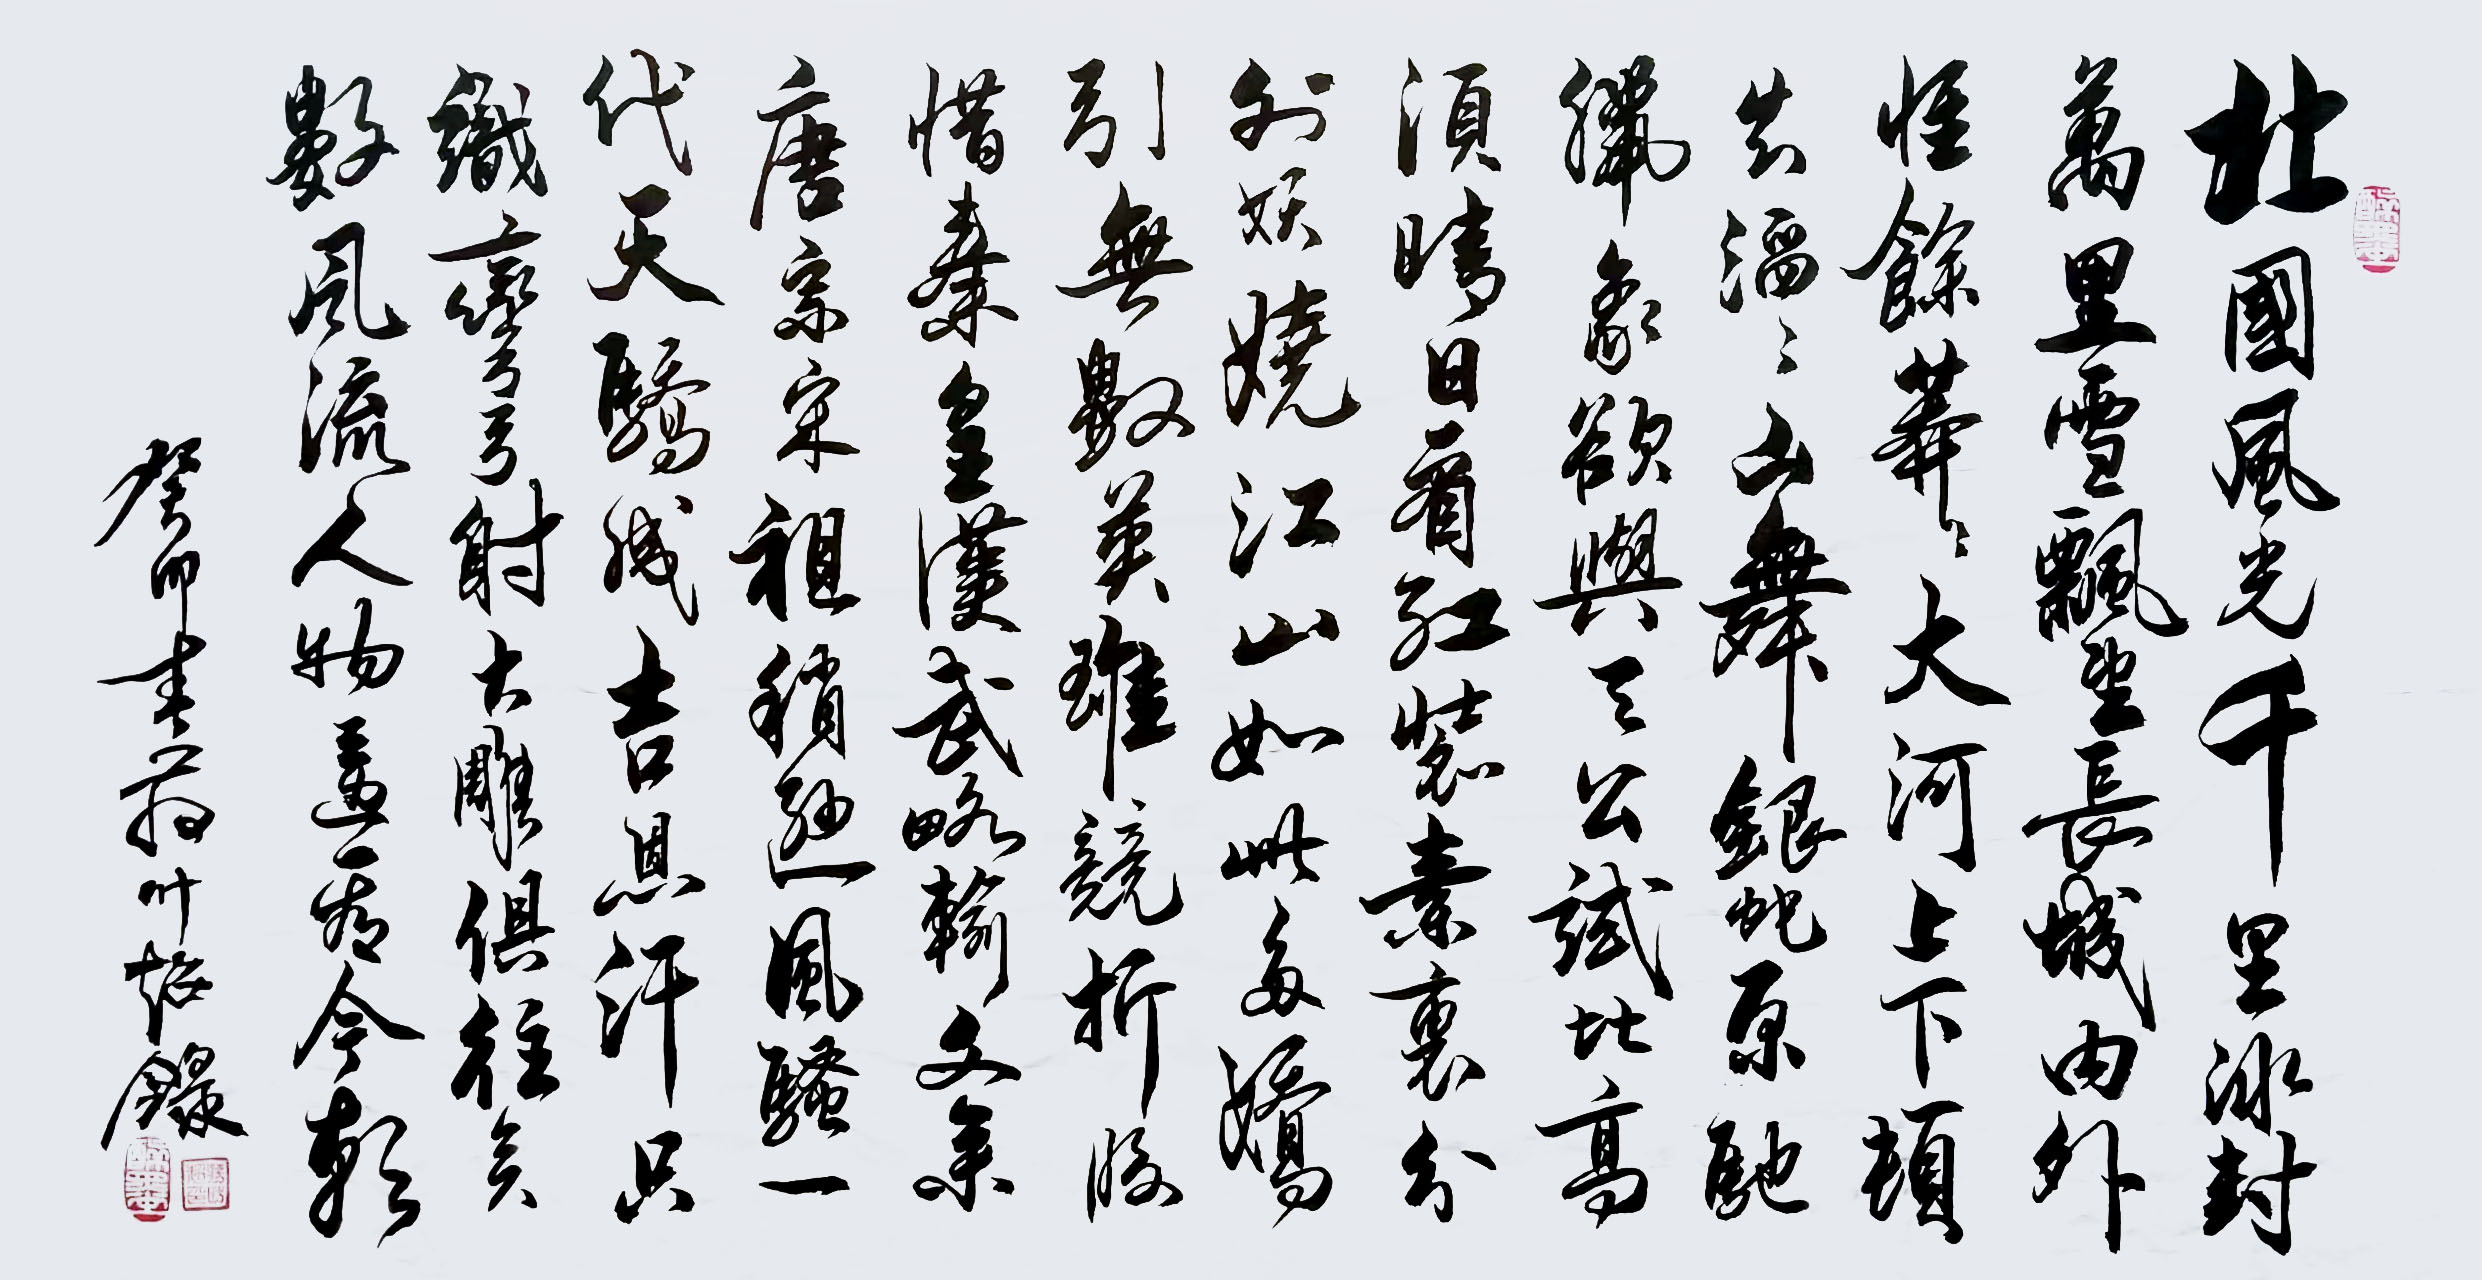 北國風光千里冰封
萬里雪飄望長城内外
惟餘莽々大河上下頓
失滔々山舞銀蛇原馳
臘象欲與天公試比高
須晴日看紅裝素裹分
外妖嬈江山如此多嬌
引無數英雄競折腰
惜秦皇漢武略輸文采
唐宗宋祖稍遜風騷一
代天驕成吉思汗只
識彎弓射大雕俱往矣
數風流人物還看今朝
癸卯春叶錄